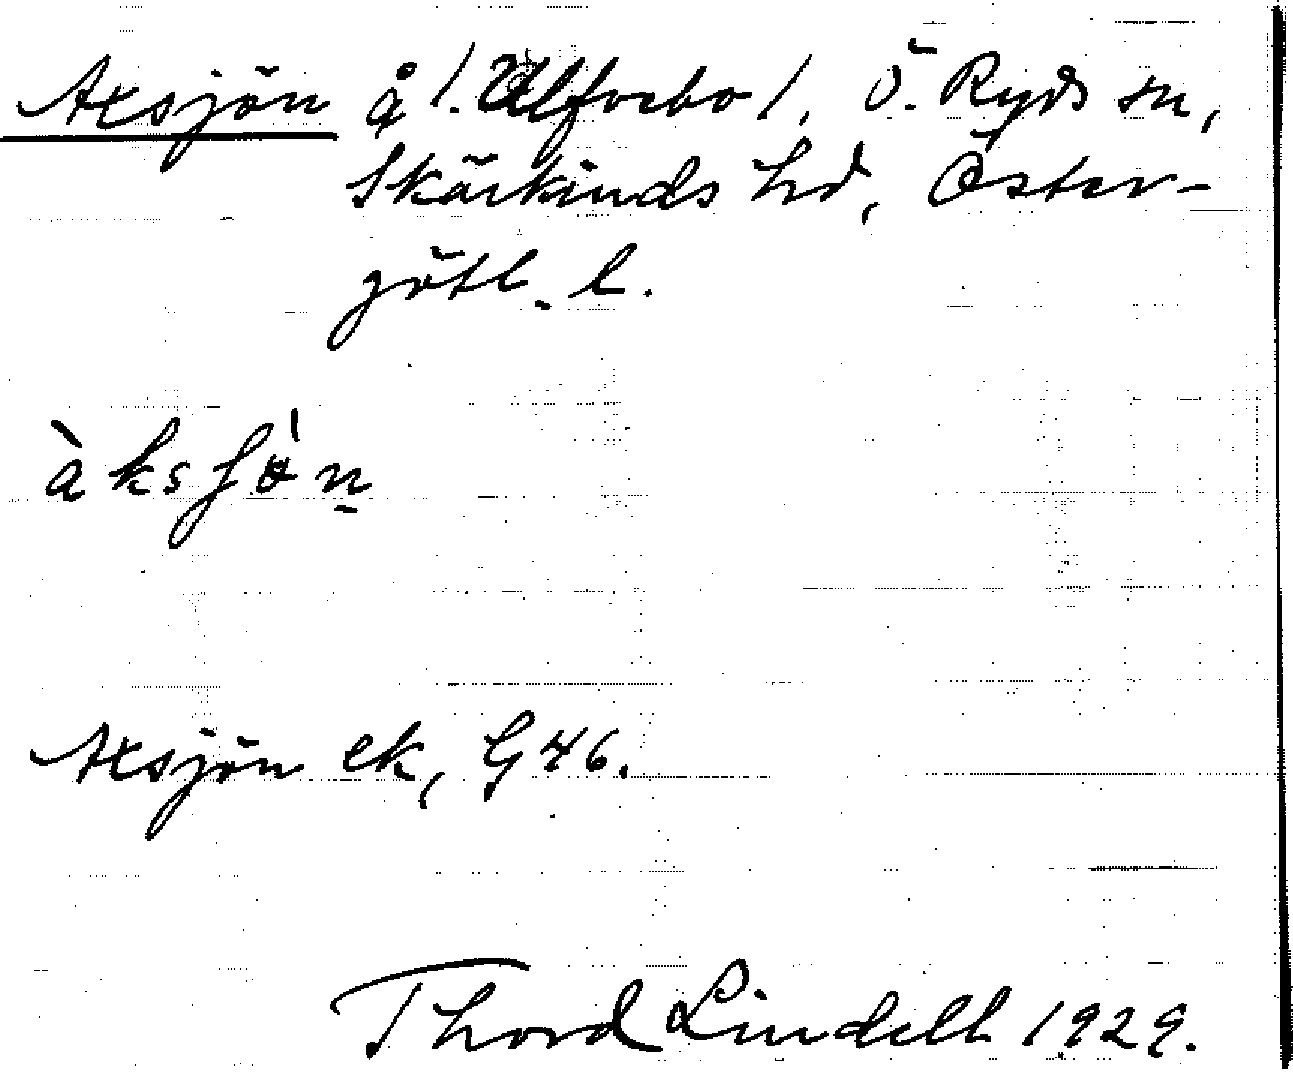 Axsjön å /. Ulfvebo /. Ö. Ryds sn,
Skärkinds hd, Öster-
götl. l.
àksʃö̀n
Axsjön ek, G 46.
Thord Lindell 1929.